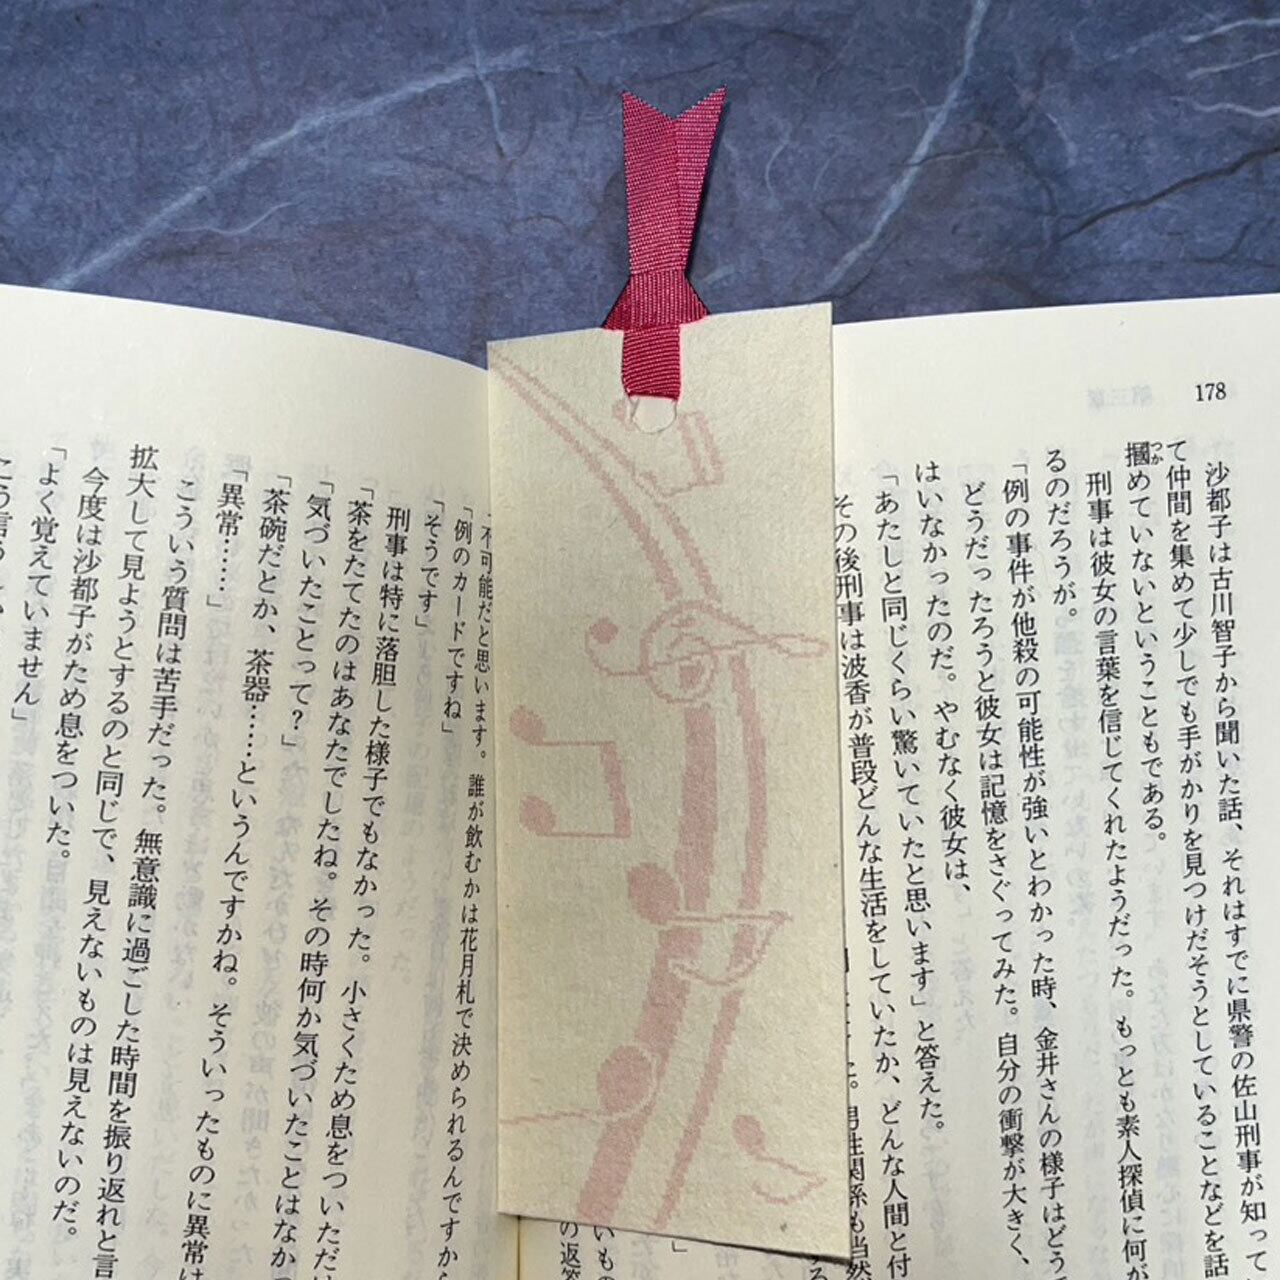 178
沙都子は古川智子から聞いた話、それはすでに県警の佐山刑事が知って
て仲間を集めて少しでも手がかりを見つけだそうとしていることなどを話
摑めていないということもである。
つか
刑事は彼女の言葉を信じてくれたようだった。もっとも素人探偵に何が
るのだろうが。
「例の事件が他殺の可能性が強いとわかった時、金井さんの様子はどう
どうだったろうと彼女は記憶をさぐってみた。自分の衝撃が大きく、
はいなかったのだ。やむなく彼女は、
「あたしと同じくらい驚いていたと思います」と答えた。
その後刑事は波香が普段どんな生活をしていたか、どんな人間と付
男性関係も当然
」
いもの
の返答
「不可能だと思います。誰が飲むかは花月札で決められるんですから
「例のカードですね」
「そうです」
刑事は特に落胆した様子でもなかった。小さくため息をついただけ
「茶をたてたのはあなたでしたね。その時何か気づいたことはなか
「気づいたことって?」
「茶碗だとか、茶器……というんですかね。そういったものに異常は
「異常……」
こういう質問は苦手だった。無意識に過ごした時間を振り返れと言
拡大して見ようとするのと同じで、見えないものは見えないのだ。
今度は沙都子がため息をついた。
「よく覚えていません」